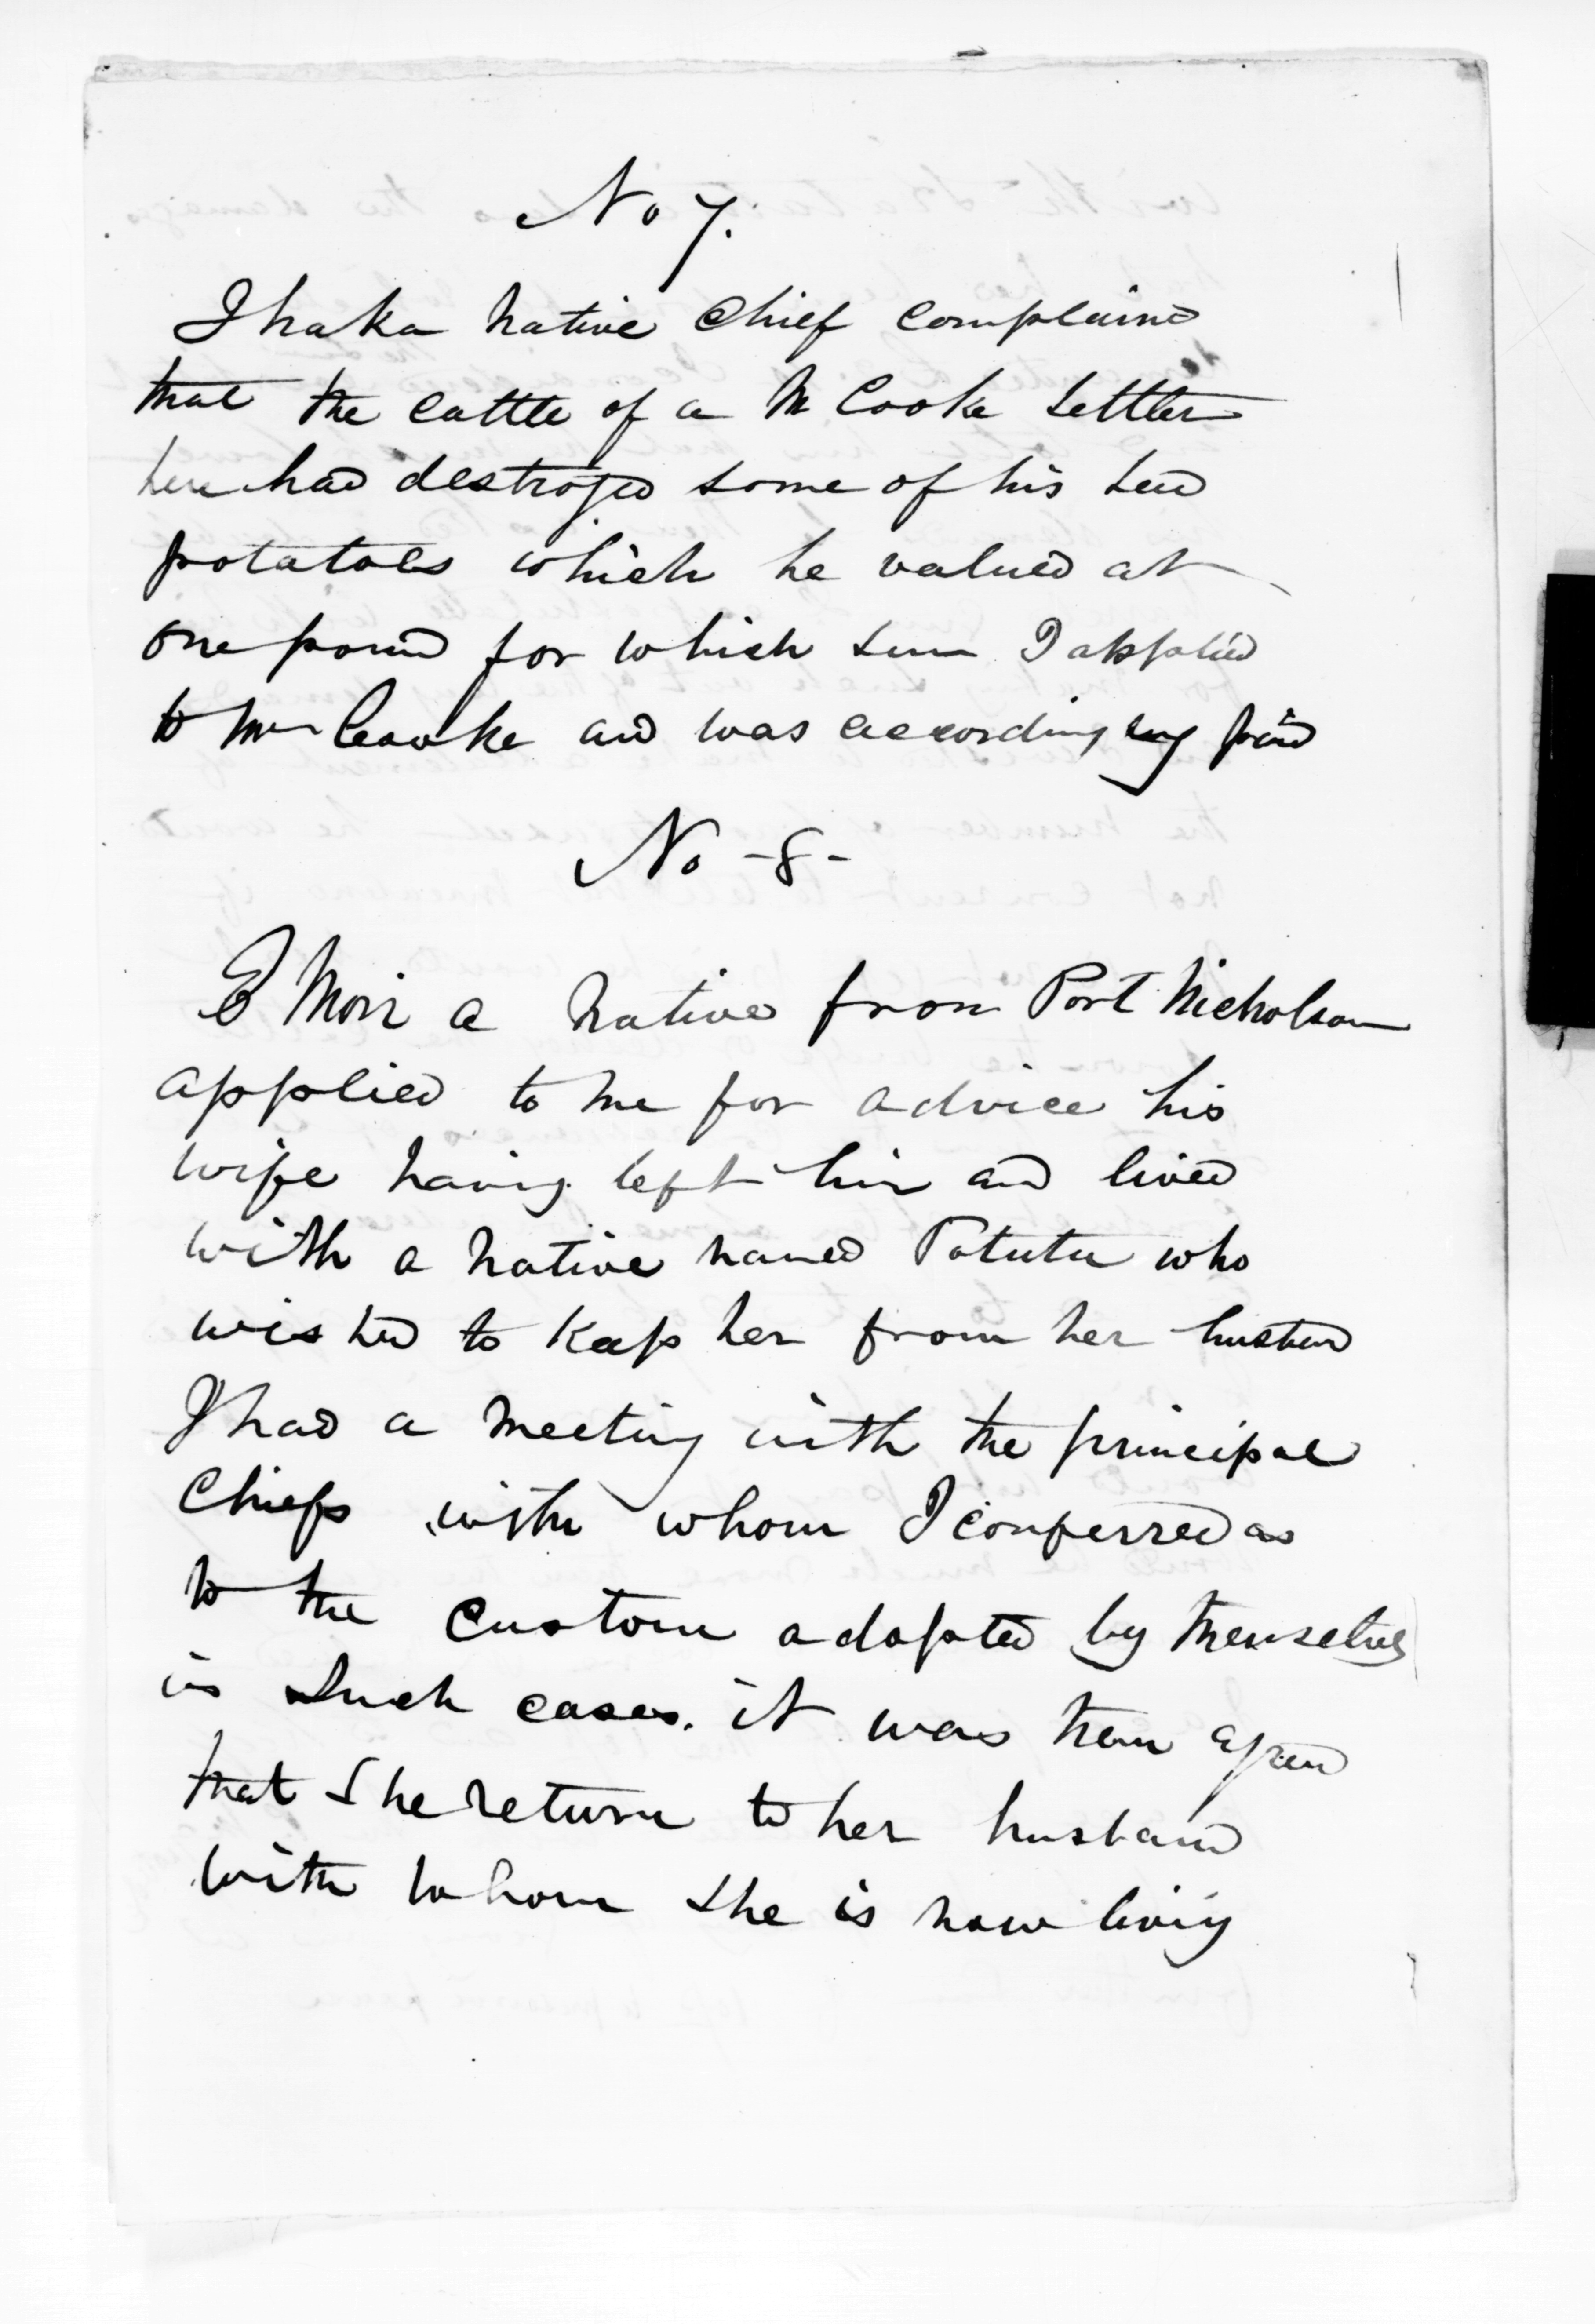 No 7.
Ihaka Native Chief complained
that the cattle of a Mr Cooke Settler
here had destroyed some of his seed
potatoes which he valued at
one pound for which sum I applied
to Mr Cooke and was accordingly paid
No -8-
E Mori a Native from Port Nicholson
applied to me for advice his
wife having left him and lived
with a Native named Tatutu who
wished to Keep her from her husband
I had a Meeting with the principal
Chiefs with whom I conferred as
to the Custom adopted by themselves
in such cases. it was then agreed
that she return to her husband
with whom she is now living